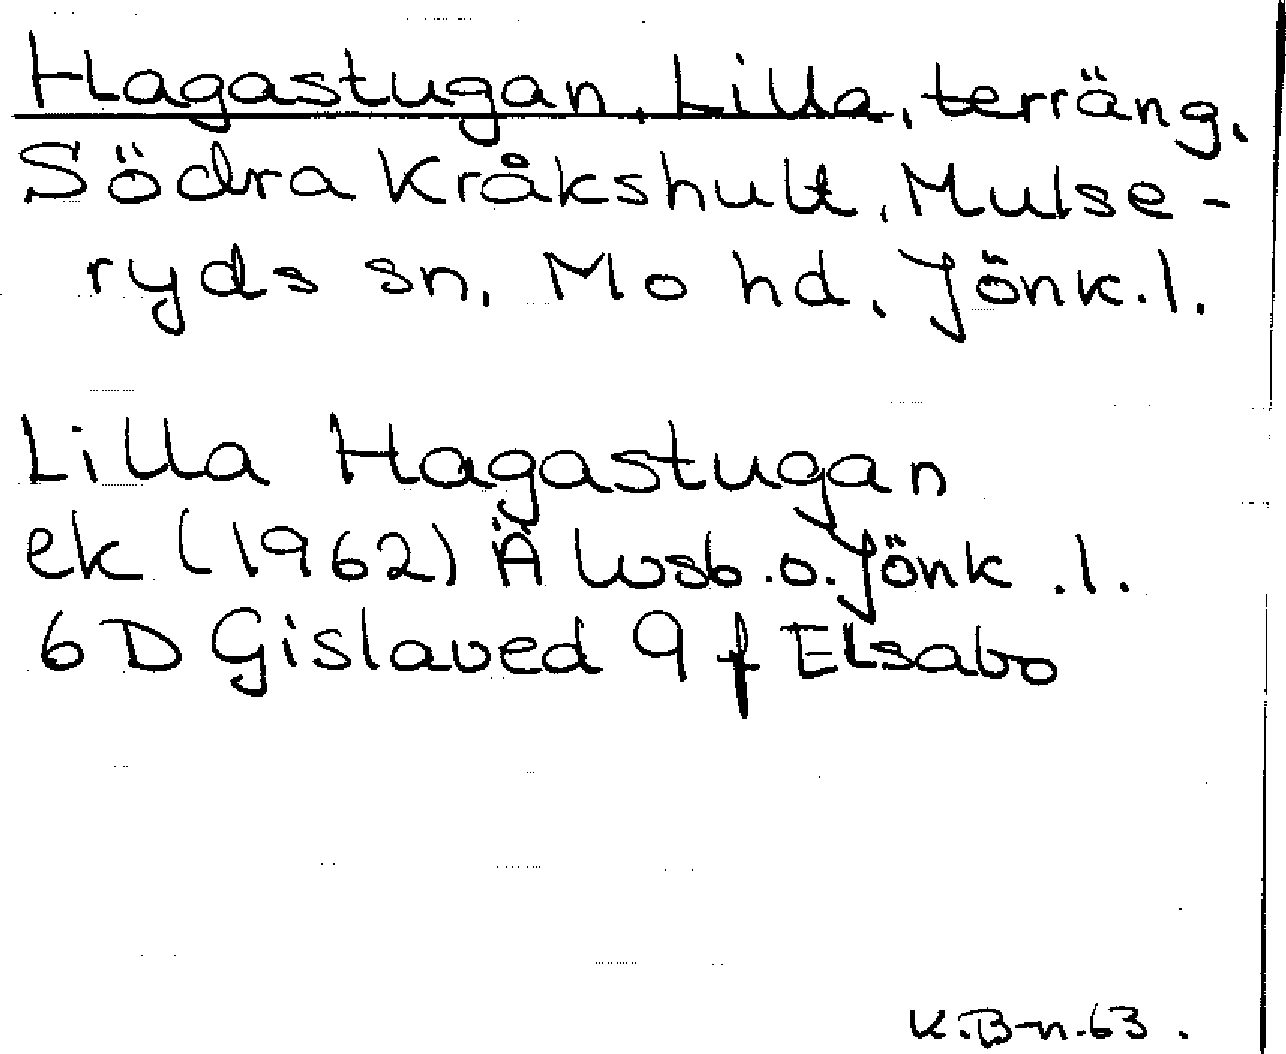 Hagastugan, Lilla, terräng,
Södra Kråkshult, Mulse-
ryds sn, Mo hd, Jönk.l.
Lilla Hagastugan
ek (1962) Ä Wsb.o.Jönk.l.
6D Gislaved 9f Elsabo
K.B-n.63.